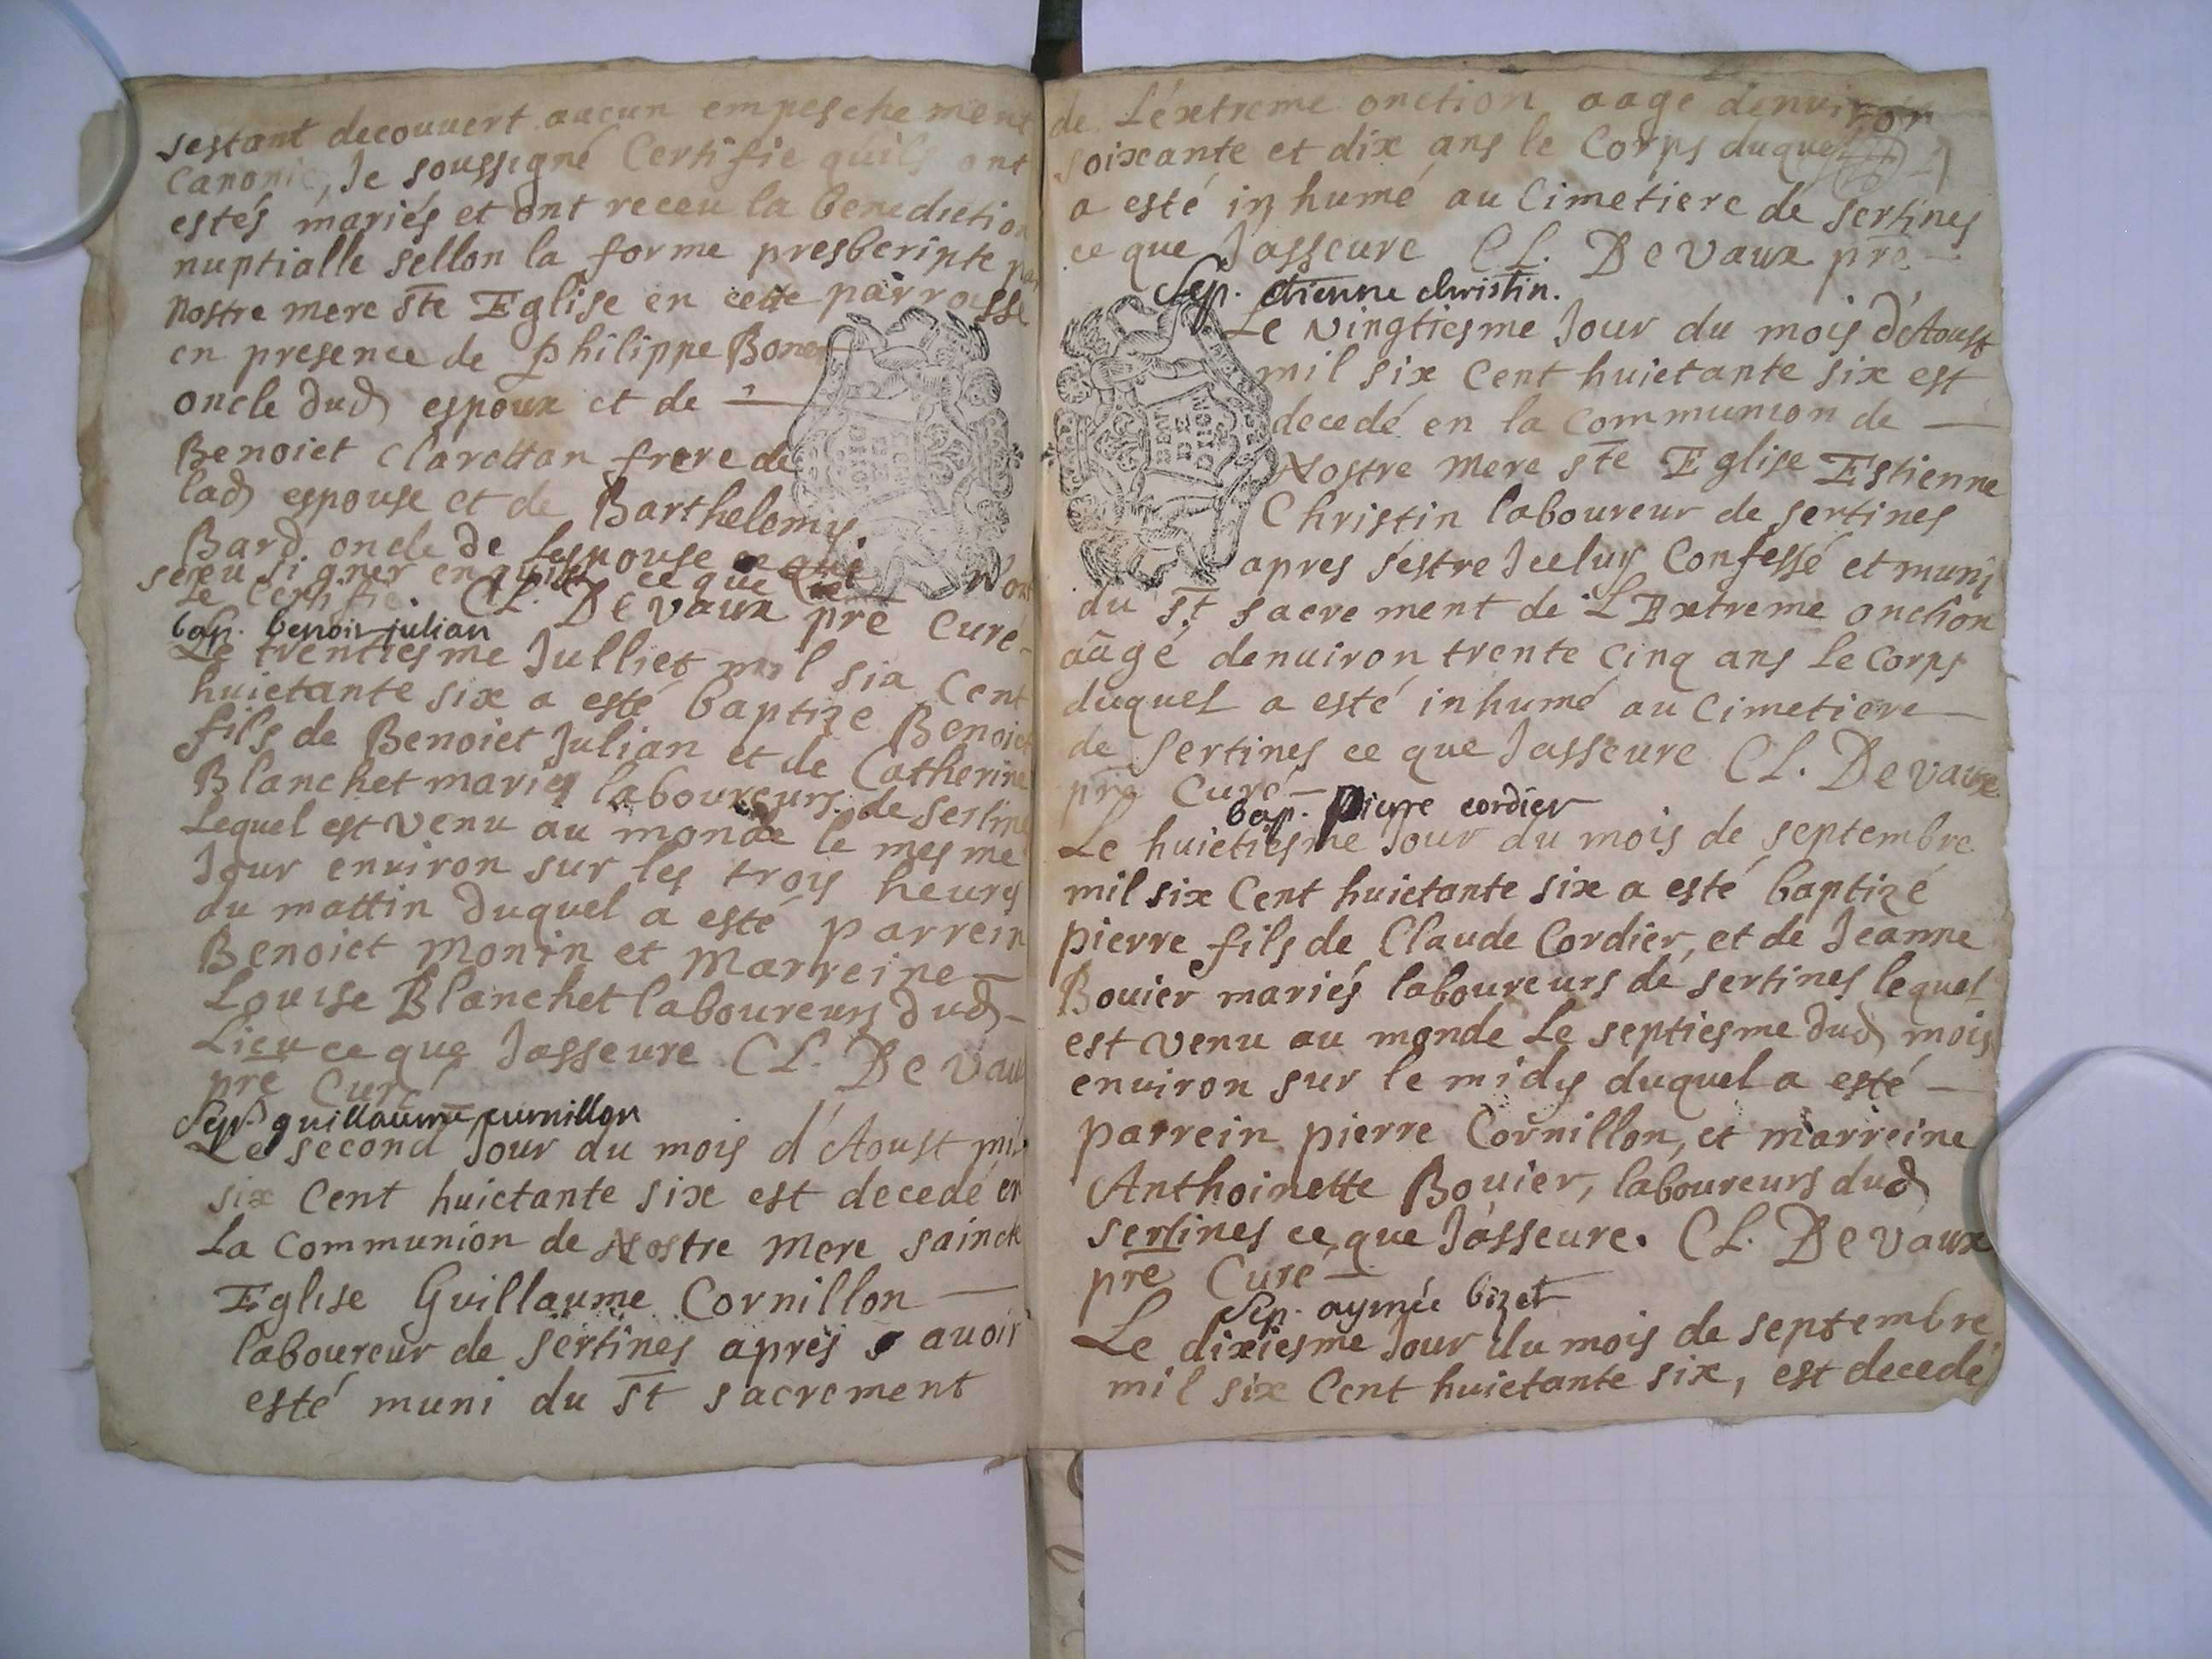 sestant decouuert aucun empeschement
Canonic, Je soussigné Certifie quils ont
estés mariés et ont receu la benediction
nuptialle sellon la forme presberipte par
nostre mere ste Eglise en cette parroisse
en presence de Philippe Bone
oncle dud espoux et de
Benoict Clarettan frere de
lad espouse et de Barthelemy
Bard oncle de lespouse
sceu signer enquis ce que Non
Je Certifie. CL. De Vaux pre Curé
bap. benoit julian
Le trentiesme Julliet mil six Cent
huictante six a esté baptize Benoict
fils de Benoict Julian et de Catherine
Blanchet mariés laboureurs de Sertines
Lequel est venu au monde le mesme
Jour enuiron sur les trois heures
du mattin duquel a esté parrein
Benoict Monin et Marreine
Louise Blanchet laboureurs dud
Lieu ce que Jasseure CL. De Vaux
pre Curé
Sep. guillaume curnillon
Le second Jour du mois d'Aoust mil
six Cent huictante six est decedé en
La Communion de Nostre Mere saincte
Eglise Guillaume Cornillon
laboureur de Sertines apres avoir
esté muni du st sacrement
de L'éxtreme onction aagé denuiron
soixante et dix ans le Corps duquel
a esté inhumé au Cimetiere de Sertines
ce que Jasseure CL. De Vaux pre
Sep. etienne christin.
Le vingtiesme Jour du mois d'Aoust
mil six Cent huictante six est
decedé en la Communion de
Nostre Mere ste Eglise Estienne
Christin laboureur de Sertines
apres s'estre Jceluy Confessé et muni
du st sacrement de L'Extreme onction
aâgé denuiron trente cinq ans Le Corps
duquel a esté inhumé au Cimetiere
de Sertines ce que Jasseure CL. De Vaux
pre Curé
bap. pierre cordier
Le huictiesme Jour du mois de septembre
mil six Cent huictante six a esté baptizé
pierre fils de Claude Cordier, et de Jeanne
Bouier mariés laboureurs de Sertines lequel
est venu au monde Le septiesme dud mois
enuiron sur le midy duquel a esté
parrein pierre Cornillon, et marreine
Anthoinette Bouier, laboureurs dud
Sertines ce que Jasseure. CL. De Vaux
pre Curé
Sep. aymée bizet
Le dixiesme Jour du mois de septembre
mil six Cent huictante six, est decedé